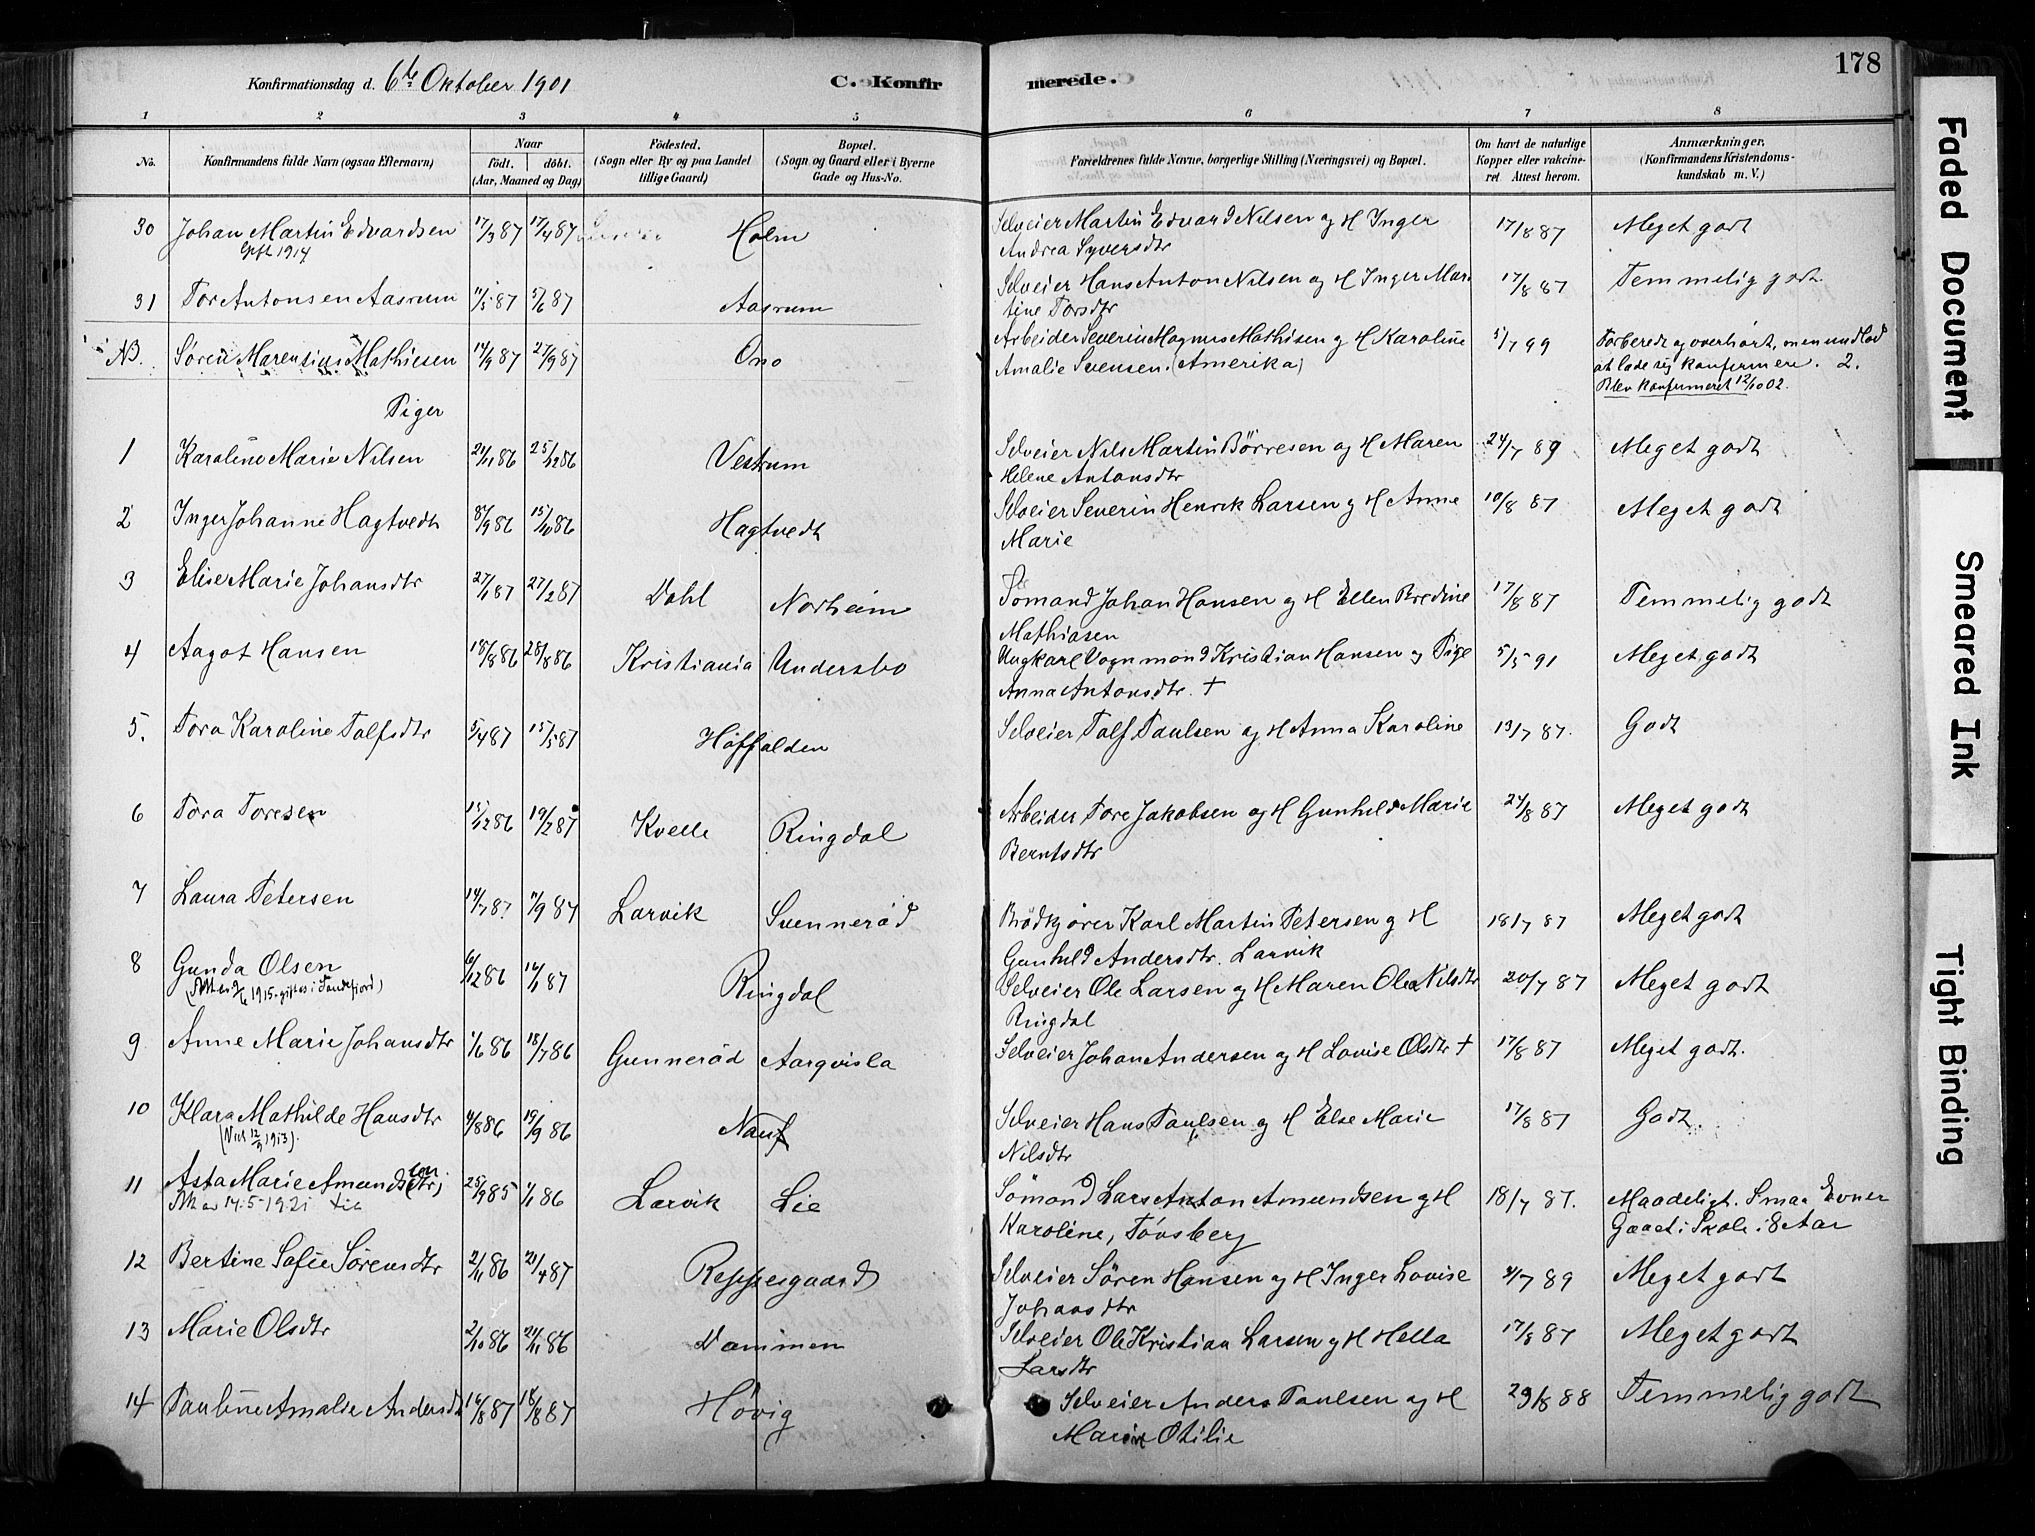 Konfirmationsdag d. 6te Oktober 1901
C. Konfirmerede.
178
1 2 3 4 5 6 7 8
No.
Konfirmandens fulde Navn (ogsaa Efternavn)
Naar
födt. döbt.
(Aar, Maaned og Dag)
Födested.
(Sogn eller By og paa Landet
tillige Gaard)
Bopæl.
(Sogn og Gaard eller i Byerne
Gade og Hus-No.
Forældrenes fulde Navne, borgerlige Stilling (Næringsvei) og Bopæl.
Om havt de naturlige
Kopper eller vakcine-
ret Attest herom.
Anmærkninger.
(Konfirmandens Kristendoms-
kundskab m. V.)
30 Johan Martin Edvardsen 17/3 87 17/4 87 Holm Selveier Martin Edvard Nilsen og H Inger 17/8 87 Meget godt
Gift 1914 Andrea Syversdtr
31 Tor Antonsen Aasrum 11/5 87 5/6 87 Aasrum Selveier Hans Anton Nilsen og H Inger Mar 17/8 87 Temmelig godt.
tine Torsdtr
NB. Søren Marensius Mathiesen 14/9 87 27/9 87 Ono Arbeider Severin Magnus Mathisen og H Karoline 5/7 99 Forberedt og overhørt, men undlod
Amalie Svensen. (Amerika) at lade sig konfirmere. 2.
Blev konfirmeret 12/10 02.
Piger
1 Karoline Marie Nilsen 21/11 86 25/12 86 Vestrum Selveier Nils Martin Børresen og H Maren 24/7 89 Meget godt
Helene Antonsdtr
2 Inger Johanne Hagtvedt 8/9 86 15/10 86 Hagtvedt Selveier Severin Henrik Larsen og H Anne 10/8 87 Meget godt
Marie
3 Elise Marie Johansdtr 27/1 87 27/2 87 Dahl Norheim Sömand Johan Hansen og H Ellen Bredine 17/8 87 Temmelig godt
Mathiasen
4 Aagot Hansen 18/8 86 28/8 86 Kristiania Undersbo Ungkarl Vognmand Kristian Hansen og Pige 5/5 91 Meget godt
Anna Antonsdtr. †
5. Tora Karoline Talfsdtr 5/4 87 15/5 87 Höffolden Selveier Talf Paulsen og H Anna Karoline 13/7 87. Godt
6 Tora Toresen 15/12 86 19/2 87 Kvelle Ringdal Arbeider Tore Jakobsen og H Gunhild Marie 24/8 87 Meget godt
Berntsdtr
7 Laura Petersen 14/7 87 11/9 87 Larvik Svennerød Brödkjører Karl Martin Petersen og H 18/7 87 Meget godt
Gunhild Andersdtr. Larvik
8 Gunda Olsen 6/12 86 16/1 87 Ringdal Selveier Ole Larsen og H Maren Olea Nilsdtr 20/7 87 Meget godt
1915. giftes i Sandefjord) Ringdal
9 Anne Marie Johansdtr 1/6 86 18/7 86 Gunnerød Aarqvisla Selveier Johan Andersen og H Lovise Olsdtr † 17/8 87 Meget godt.
10 Klara Mathilde Hansdtr 4/8 86 19/9 86 Nauf Selveier Hans Paulsen og H Else Marie 17/8 87 Godt.
1913). Nilsdtr
11 Asta Marie Amunds(dtr) sen 25/9 85 1/1 86 Larvik Lie Sömand Lars Anton Amundsen og H 18/7 87. Maadeligt. Smaa Evner
14.5-1921 Karoline, Tönsberg Gaaet i Skole i 8 Aar
12 Bertine Sofie Sörensdtr 2/11 86 21/4 87 Reppesgaard Selveier Sören Hansen og H Inger Lovise 4/7 89 Meget godt
Johansdtr
13 Marie Olsdtr 2/10 86 21/11 86 Dammen Selveier Ole Kristian Larsen og H Hella 17/8 87 Meget godt
Larsdtr
14 Pauline Amalie Andersdtr 16/8 87 18/8 87 Høvig Selveier Anders Paulsen og H 29/8 88 Temmelig godt
Marie Otilie
Faded Document
Smeared Ink
Tight Binding